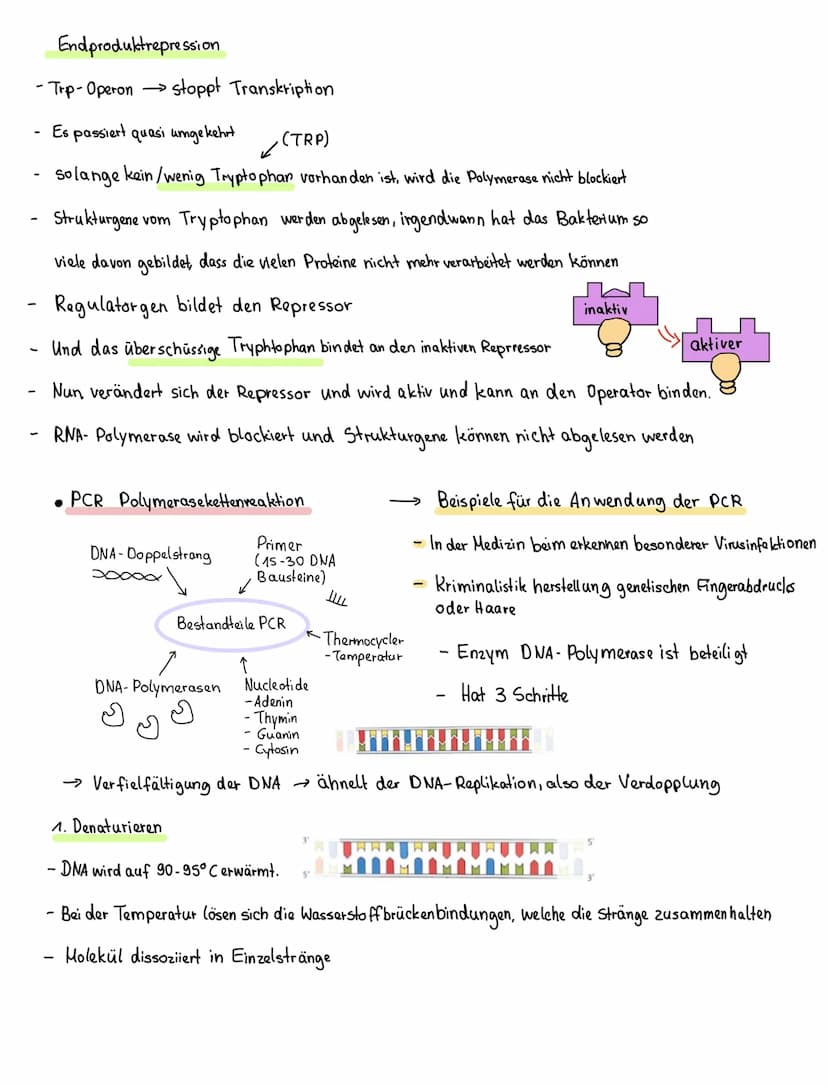 Endproduktrepression
- Trp-Operon → stoppt Transkription
- Es passiert quasi umgekehrt
(TRP)
- solange kein/wenig Tryptophan vorhanden ist, wird die Polymerase nicht blockiert
- Strukturgene vom Tryptophan werden abgelesen, irgendwann hat das Bakterium so
viele davon gebildet, dass die vielen Proteine nicht mehr verarbeitet werden können
- Regulatorgen bildet den Repressor
inaktiv
aktiver
- Und das überschüssige Tryphtophan bindet an den inaktiven Reprressor
- Nun verändert sich der Repressor und wird aktiv und kann an den Operator binden.
- RNA-Polymerase wird blockiert und Strukturgene können nicht abgelesen werden
• PCR Polymerasekettenreaktion
DNA-Doppelstrang
Primer
(15-30 DNA
Bausteine)
Bestandteile PCR
Thermocycler
-Temperatur
DNA-Polymerasen
Nucleotide
-Adenin
- Thymin
- Guanin
- Cytosin
→ Beispiele für die Anwendung der PCR
- In der Medizin beim erkennen besonderer Virusinfektionen
- Kriminalistik herstellung genetischen Fingerabdrucks
oder Haare
- Enzym DNA-Polymerase ist beteiligt
- Hat 3 Schritte
→ Verfielfältigung der DNA → ähnelt der DNA-Replikation, also der Verdopplung
1. Denaturieren
3' 5'
5' 3'
- DNA wird auf 90-95°C erwärmt.
- Bei der Temperatur lösen sich die Wasserstoffbrückenbindungen, welche die Stränge zusammenhalten
- Molekül dissoziiert in Einzelstränge